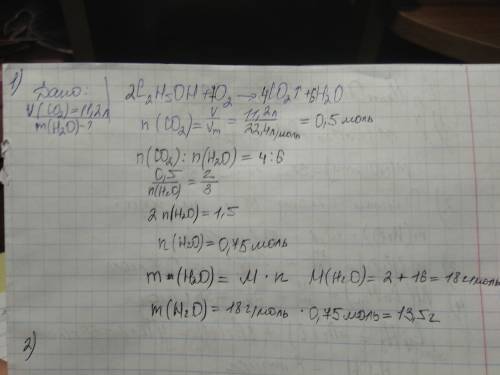 1)
Дано:
V(CO2)=11,2л
m(H2O)-?
2C2H5OH+7O2→4CO2↑+6H2O
n(CO2)=V/Vm=11,2л/22,4л/моль=0,5моль
n(CO2):n(H2O)=4:6
0,5/n(H2O)=2/3
2n(H2O)=1,5
n(H2O)=0,75моль
m(H2O)=M·n M(H2O)=2+16=18г/моль
m(H2O)=18г/моль·0,75моль=13,5г
2)